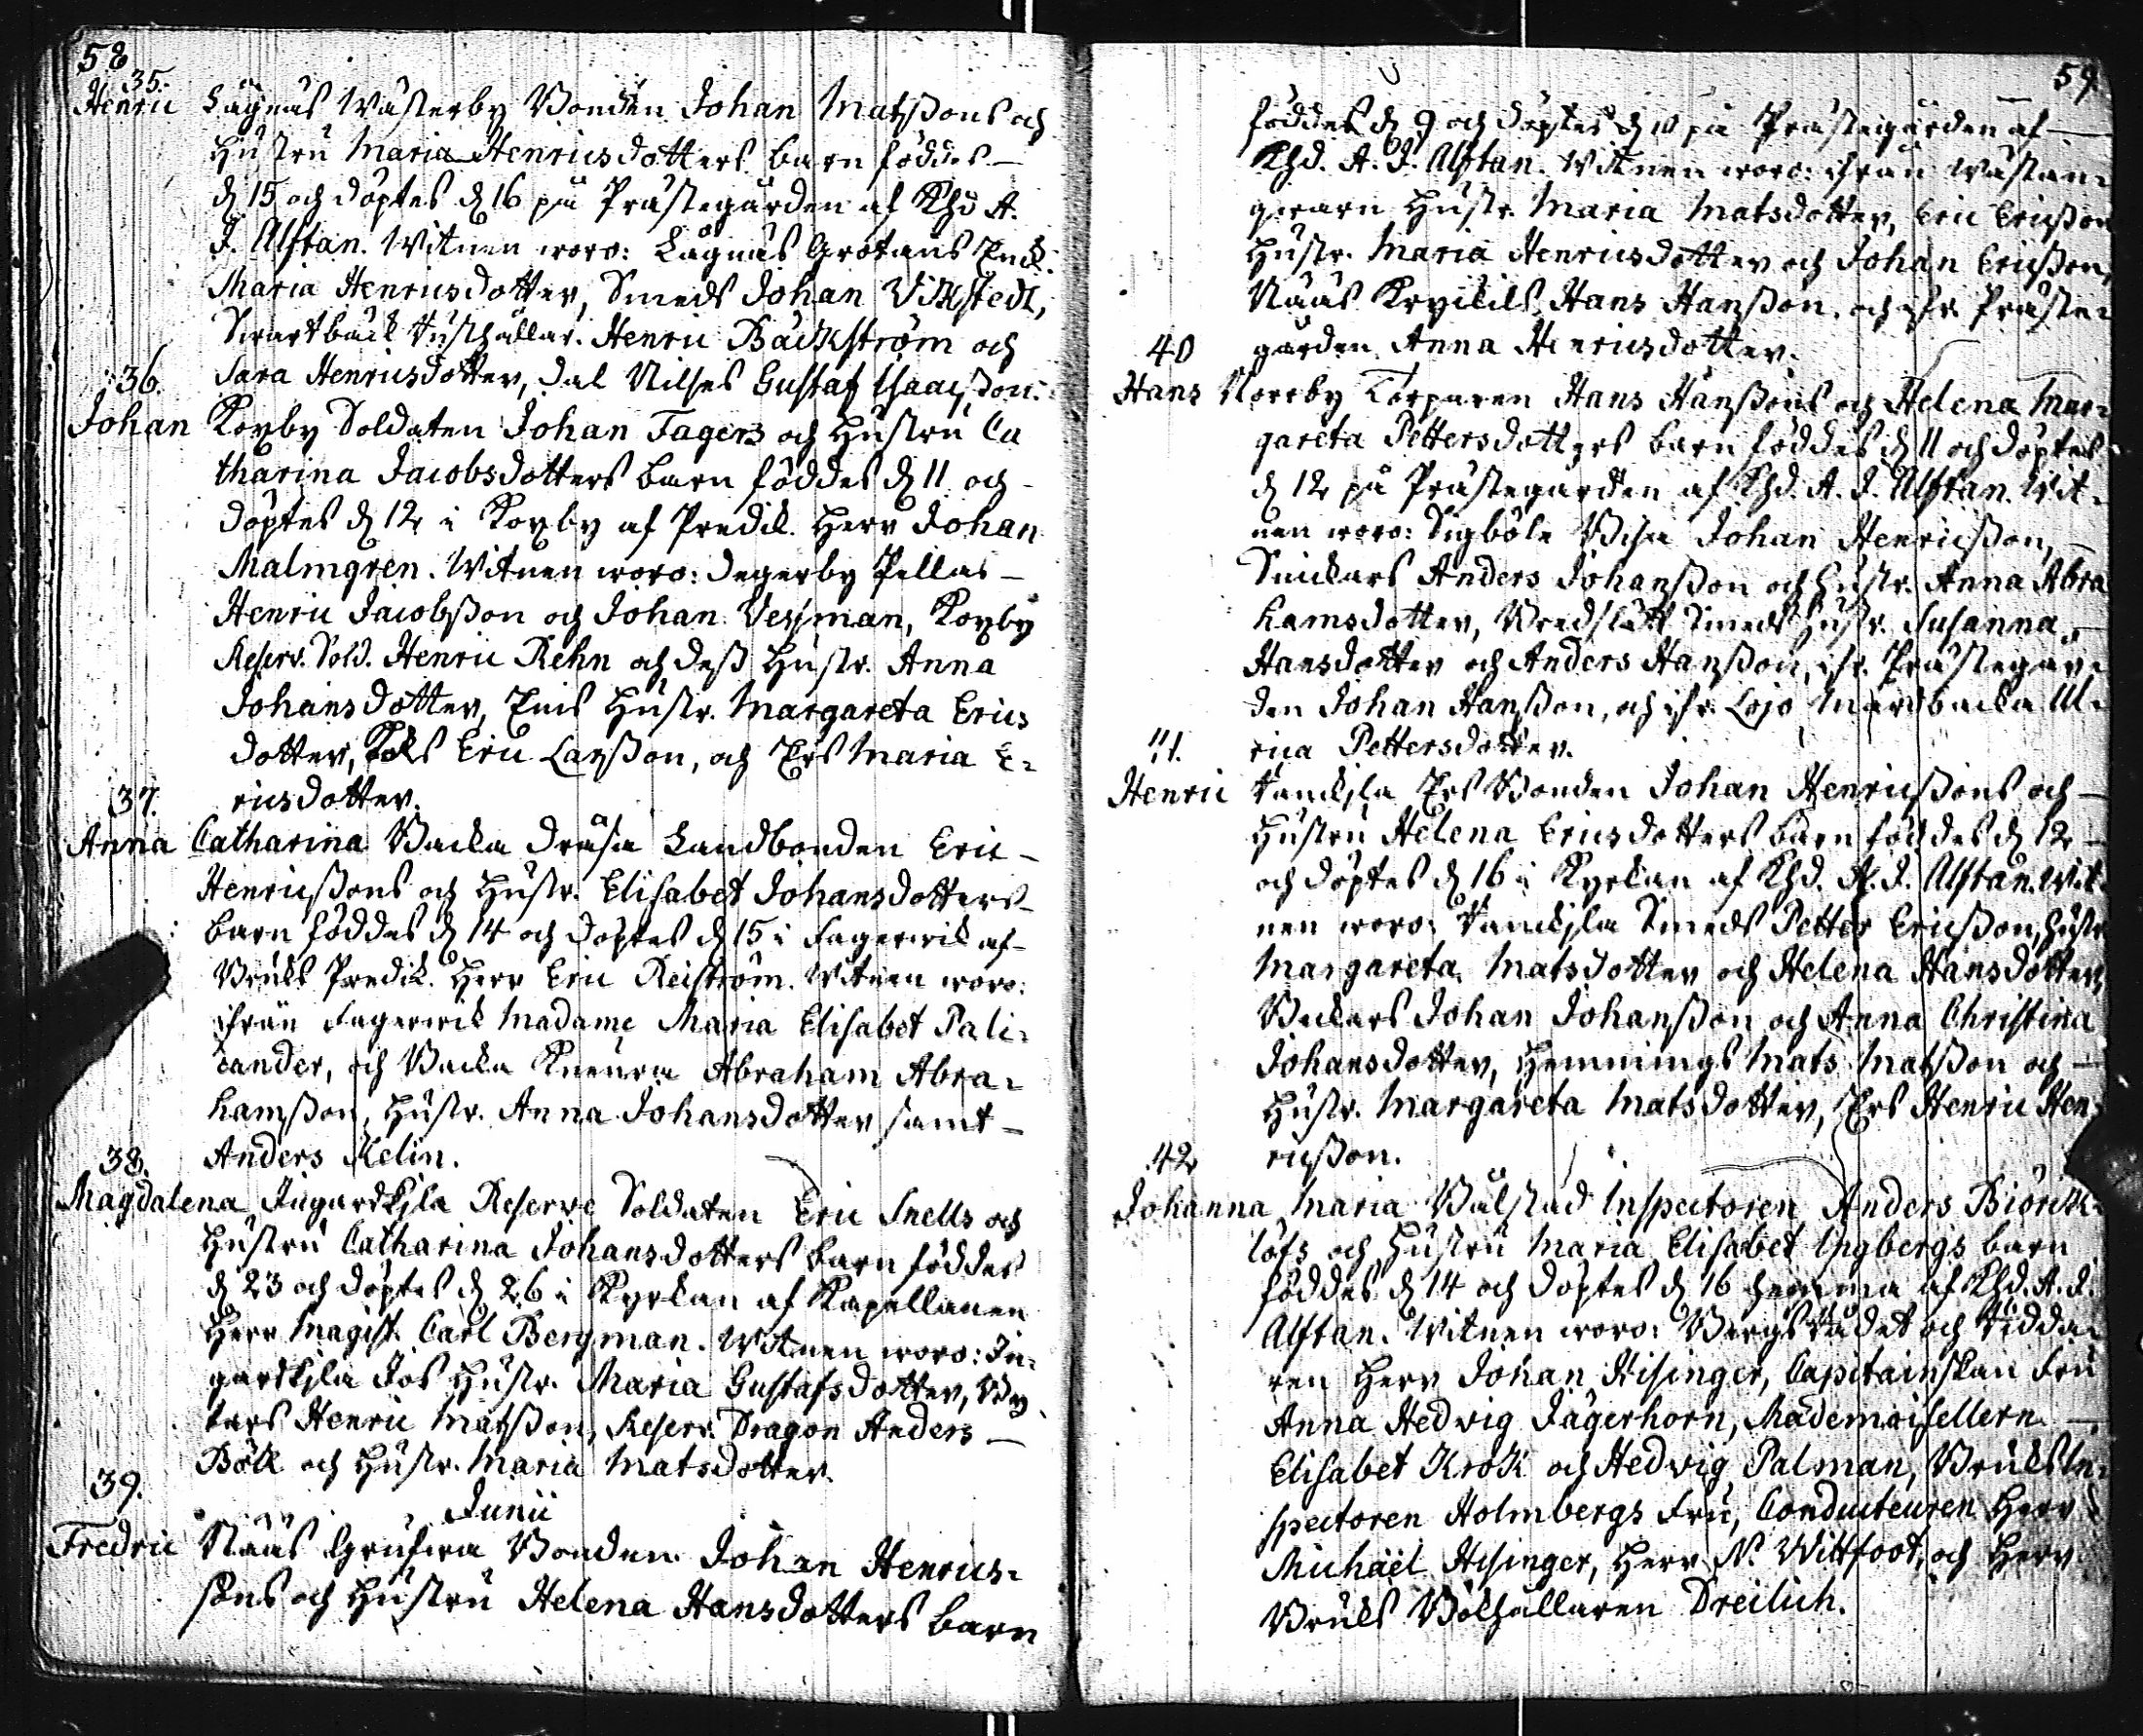 58
35.
Henric Lågnäs Wästerby Bonden Johan Matssons och
Hustru Maria Henricsdotters barn föddes
d. 15 och döptes d. 16 på Prästegården af Khd A.
J. Alftan. Witnen woro: Lågnäs Grotans Enk.
Maria Henricsdotter, Smeds Johan Vikstedt,
Swartbäck Rusthållar. Henric Bäckström och
Sara Henricsdotter, Dal Nilses Gustaf Isaacsson.
36.
Johan Koxby Soldaten Johan Fagers och Hustru Ca
tharina Jacobsdotters barn föddes d. 11 och
döptes d. 12 i Koxby af Predik. Herr Johan
Malmgren. Witnen woro: Degerby Pellas
Henric Jacobsson och Johan Vesman, Koxby
Reserv. Sold. Henric Rehn och dess Hustr. Anna
Johansdotter, Hustr. Margareta Erics
dotter, Eric Larsson, och Ers Maria E-
ricsdotter.
37.
Anna Catharina Backa Landbonden Eric
Henricssons och Hustr. Elisabet Johansdotters
barn föddes d. 14 och döptes d. 15 i Fagerwik af
Bruks Predik. Herr Eric Reiström. Witnen woro:
ifrån Fagerwik Madame Maria Elisabet Pali-
cander, och Backa Abraham Abra-
hamsson, Hustr. Anna Johansdotter samt
Anders Kelin.
38.
Magdalena Ingardskila Reserve Soldaten Eric Snells och
Hustru Catharina Johansdotters barn föddes
d. 23 och döptes d. 26 i Kyrkan af Kapellanen
Herr Magist. Carl Bergman. Witnen woro: In-
gardskila Jos Hustr. Maria Gustafsdotter,
Henric Matsson, Reserv. Dragon Anders
Böck och Hustr. Maria Matsdotter.
39.
Junii
Fredric Näås Bonden Johan Henrics-
sons och Hustru Helena Hansdotters barn
59
föddes d. 9 och döptes d. 10 på Prästegården af
Khd. A. J. Alftan. Witnen woro: ifrån Wästan-
Hustr. Maria Matsdotter, Eric Ericsson
Hustr. Maria Henricsdotter och Johan Ericsson,
Näås Hans Hansson, och ifr. Präste-
gården Anna Henricsdotter.
40
Hans Norrby Torparen Hans Hanssons och Helena Mar-
gareta Pettersdotters barn föddes d. 11 och döptes
d. 12 på Prästegården af Khd. A. J. Alftan. Wit-
nen woro: Sigböle Johan Henricsson,
Snickars Anders Johansson och Hustr. Anna Abra
hamsdotter, Bredslätt Smeds Hustr. Susanna
Hansdotter och Anders Hansson, ifr. Prästegår-
den Johan Hansson, och ifr. Lojo Mardbacka Ul-
rica Pettersdotter.
41.
Henric Ers Bonden Johan Henricssons och
Hustru Helena Ericsdotters barn föddes d. 12
och döptes d. 16 i Kyrkan af Khd. A. J. Alftan. Wit-
nen woro: Smeds Petter Ericsson, Hustr.
Margareta Matsdotter och Helena Hansdotter,
Backars Johan Johansson och Anna Christina
Johansdotter, Hemmings Mats Matsson och
Hustr. Margareta Matsdotter, Ers Henric Hen-
ricsson.
42
Johanna Maria Bålstad Inspectoren Anders Biörk-
löfs och Hustru Maria Elisabet Ingbergs barn
föddes d. 14 och döptes d. 16 hemma af Khd. A. J.
Alftan. Witnen woro: Bergs Rådet och Ridda-
ren Herr Johan Hisinger, Capitainskan Fru
Anna Hedvig Jägerhorn, Mademoisellern
Elisabet Krok och Hedvig Palman, Bruks In-
spectoren Holmbergs Fru, Conducteuren Herr
Michaël Hisinger, Herr N. Wittfoot, och Herr
Bruks Bokhållaren Dreilich.